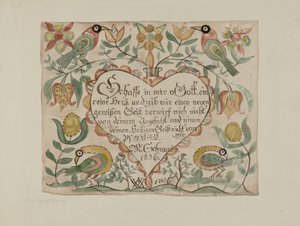 Schaffe in mir o Gott ein
reine Herz und gib mir einen neuen
gewissen Geist verwirf mich nicht
von deinem Angesicht und nimm
deinen Heiligen Geist nicht von
mir
1836.
1836